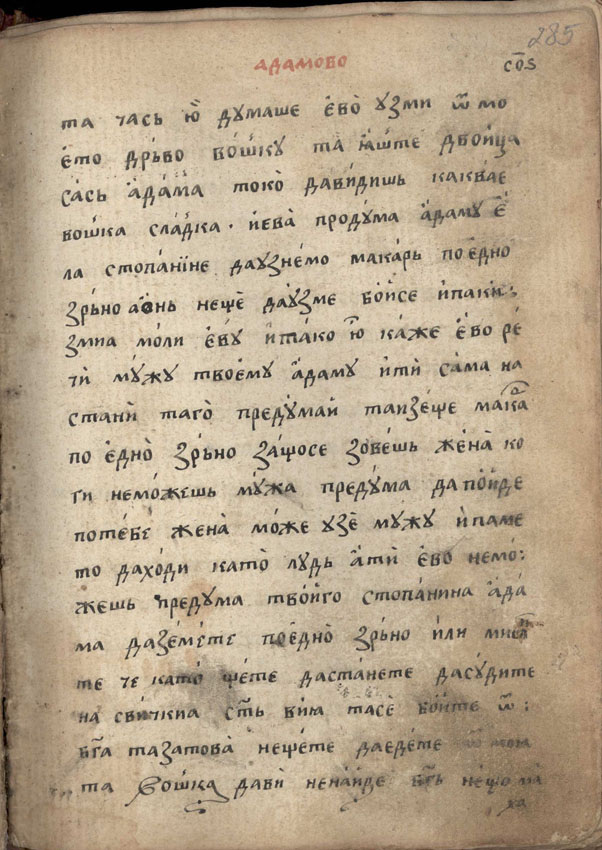 285
АДАМОВО
СО҃Ѕ
та чась ю̀ думаше ево̀ узми ѿ мо
е́то дрьво во́шку та ꙗ́ште двои́ца
са́сь а́да́ма токо̀ дави́дишь каквае
вошка сла́дка · иева̀ проду́ма а́даму е҆
ла стопані́не даузне́мо мака́рь по е́дно
зрьно а о́нь нещѐ да́узме бо́исе и҆паки:
змиа моли е́ву и҆ та́ко ю̀ ка́же е́во ре́
чи̂ му́жу твое́му а́даму и҆ти̂ са́ма на
стани̂ таго̀ преду́маи таизе́ще мака̀
по е́дно̀ зрьно за́щосе зове́шь же́на̀ ко
ги немо́жешь му́жа преду́ма да по́иде
поте́бе жена̀ мо́же узе̂ мужу и҆паме
то дахо́ди като̀ лудь а́ти̂ е́во немо:
жешь преду́ма тво́иго стопа́нина а́да́
ма дазе́ме́те пое́дно̀ зрьно и҆ли
те че като̀ ще́те даста́нете дасу́дите
на сви́чкиа сть ви́мъ тасе̂ бои́те ѿ:
бга̃ тазатова̀ неще́те дае́де́те ѿ мою
та вошка дави̂ нена́иде бгь не́що ма
ха